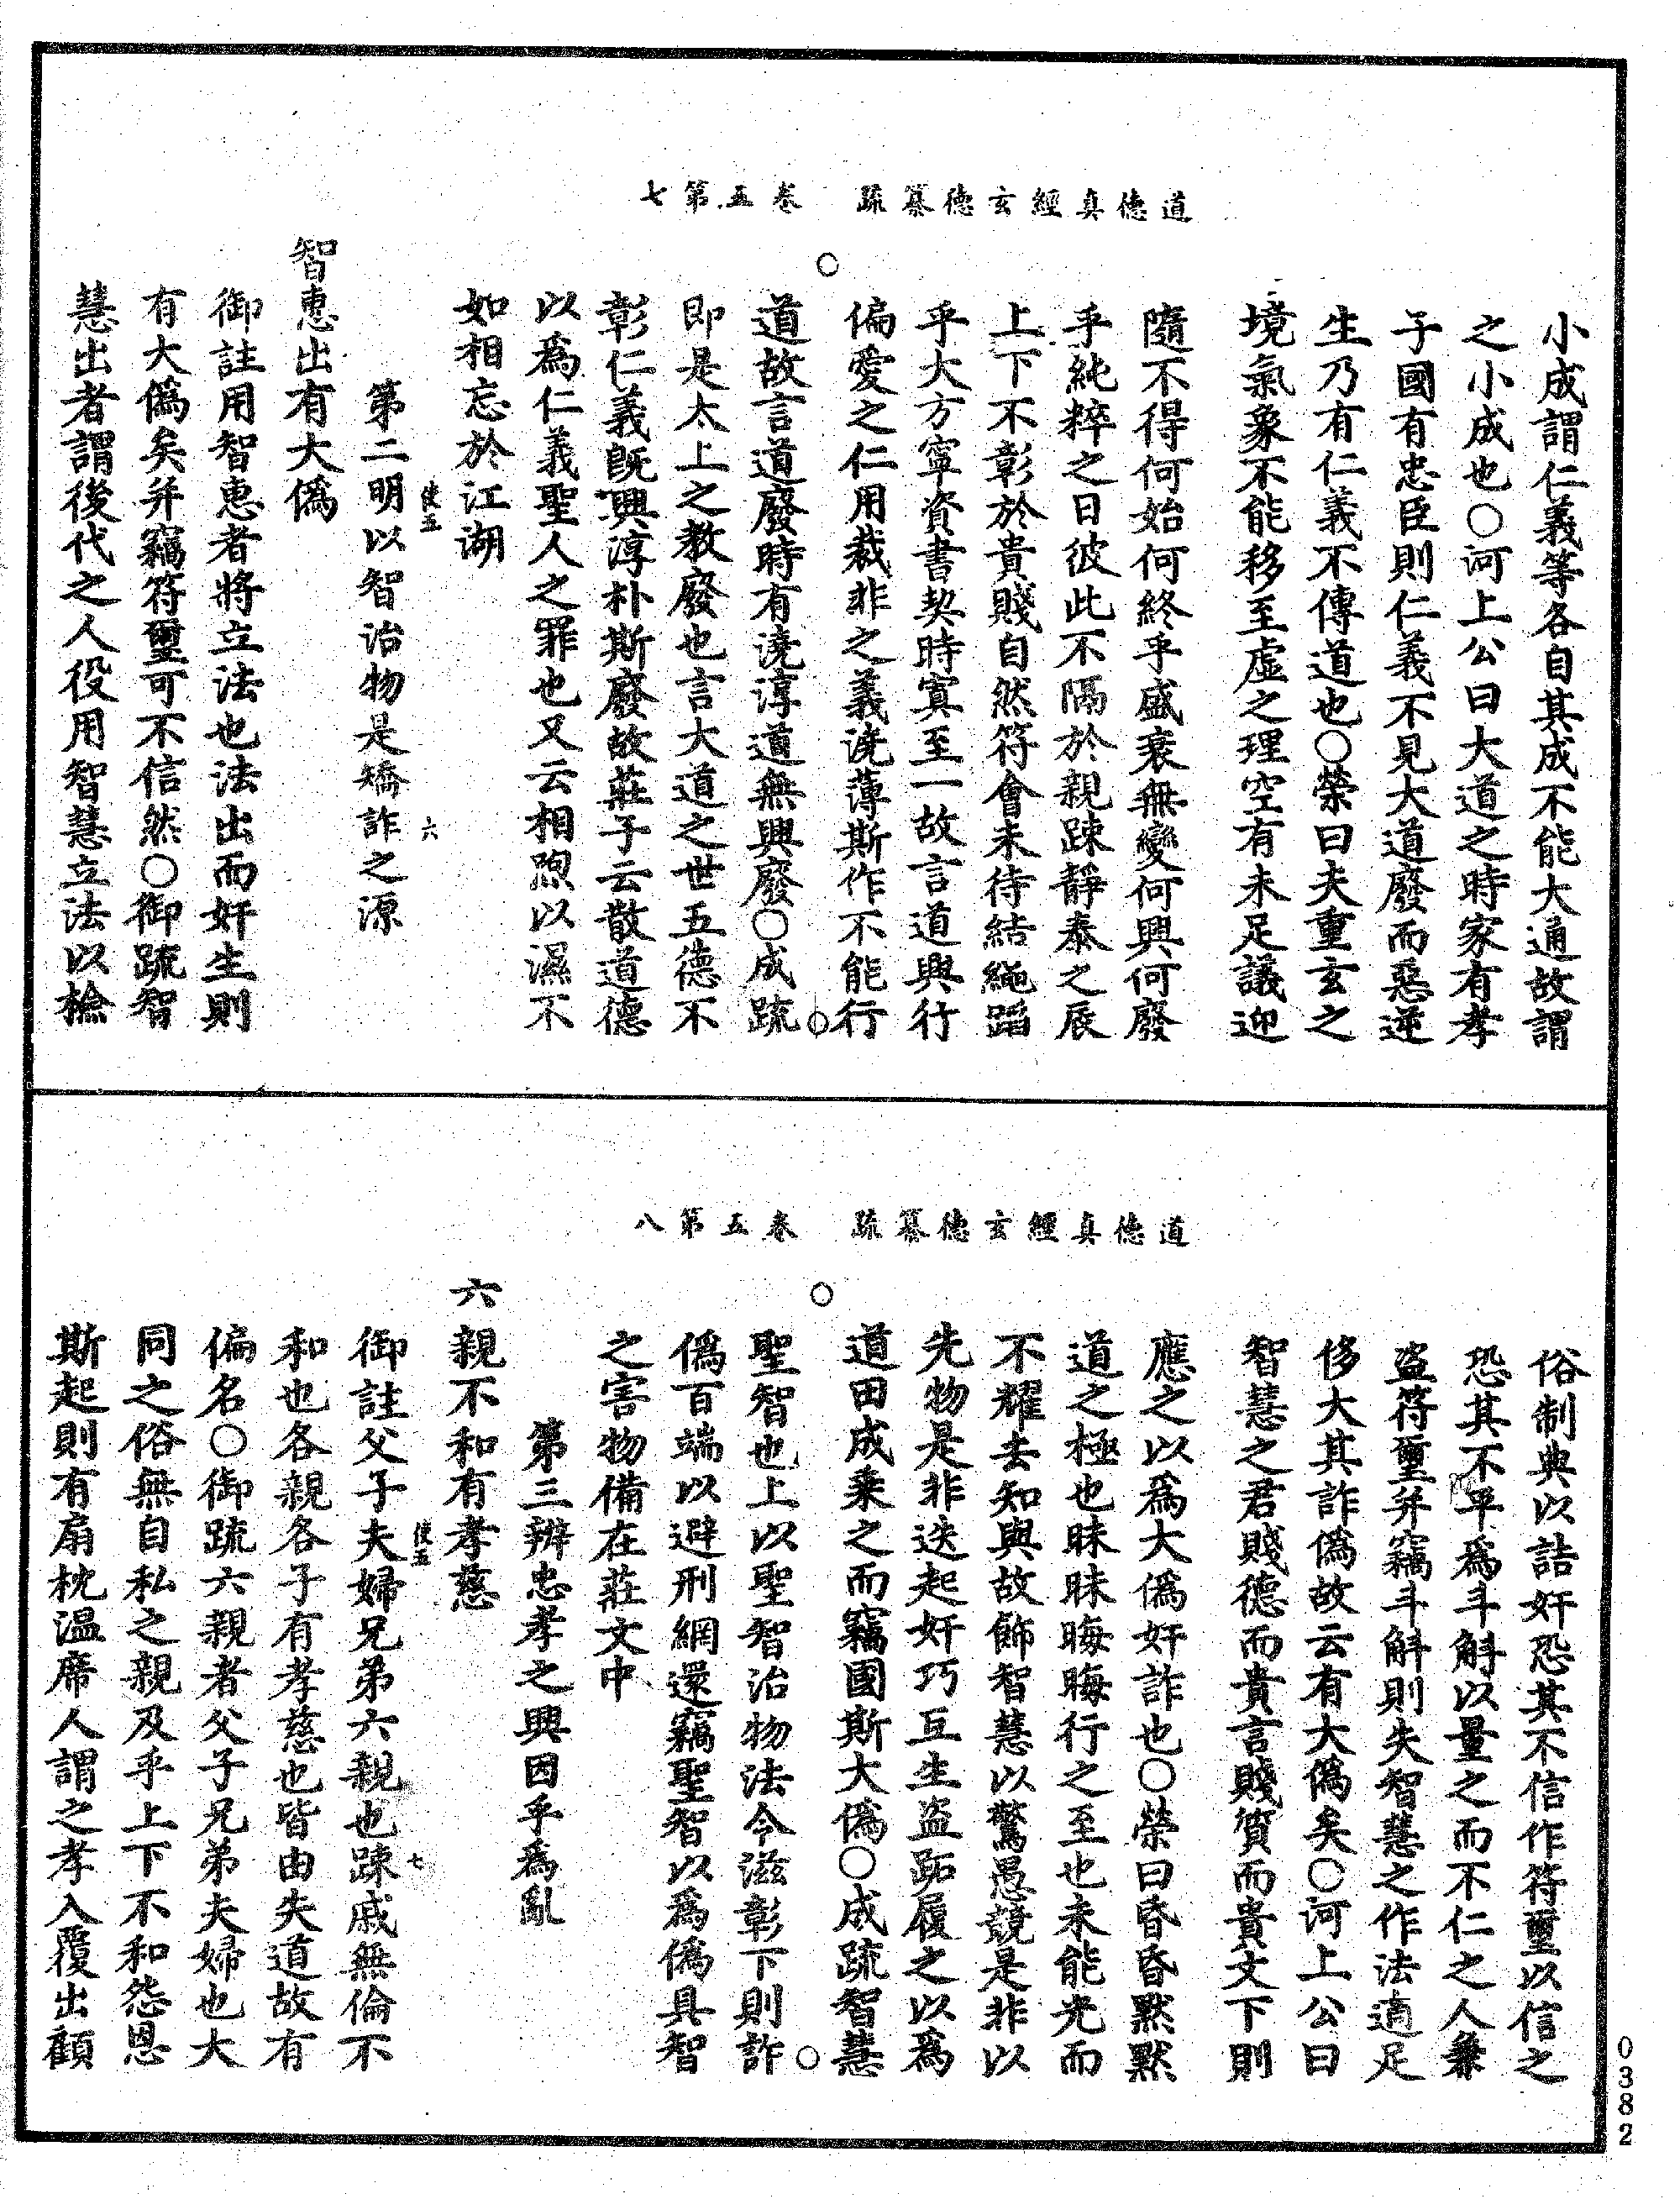 道德真經玄德纂疏　卷五第七
小成謂仁義等各自其成不能大通故謂
之小成也〇河上公曰大道之時家有孝
子國有忠臣則仁義不見大道廢而惡逆
生乃有仁義不傳道也〇榮曰夫重玄之
境氣象不能移至虛之理空有未足議迎
隨不得何始何終乎盛衰無變何興何廢
乎純粹之日彼此不隔於親踈靜泰之辰
上下不彰於貴賤自然符會未待結繩蹈
乎大方寧資書契時寘至一故言道與行
偏愛之仁用裁非之義澆薄斯作不能行
道故言道廢時有澆淳道無興廢〇成疏
即是太上之教廢也言大道之世五德不
彰仁義旣興淳朴斯廢故莊子云散道德
以爲仁義聖人之罪也又云相喣以濕不
如相忘於江湖
第二明以智治物是矯詐之源
智惠出有大僞
御註用智惠者將立法也法出而奸生則
有大僞矣并竊符璽可不信然〇御疏智
慧出者謂後代之人役用智慧立法以檢
道德真經玄德纂疏　卷五第八
俗制典以詰奸恐其不信作符璽以信之
恐其不平爲斗斛以量之而不仁之人兼
盜符璽并竊斗斛則失智慧之作法適足
侈大其詐僞故云有大僞矣〇河上公曰
智慧之君賤德而貴言賤質而貴文下則
應之以爲大僞奸詐也〇榮曰昏昏默默
道之極也昧昧晦晦行之至也未能光而
不耀去知與故飾智慧以驚愚競是非以
先物是非迭起奸巧互生盜跖履之以爲
道田成乘之而竊國斯大僞〇成疏智慧
聖智也上以聖智治物法令滋彰下則詐
僞百端以避刑網還竊聖智以爲僞具智
之害物備在莊文中
第三辨忠孝之興因乎爲亂
六親不和有孝慈
御註父子夫婦兄弟六親也踈戚無倫不
和也各親各子有孝慈也皆由失道故有
偏名〇御疏六親者父子兄弟夫婦也大
同之俗無自私之親及乎上下不和怨恩
斯起則有扇枕温席人謂之孝入覆出顧
0382